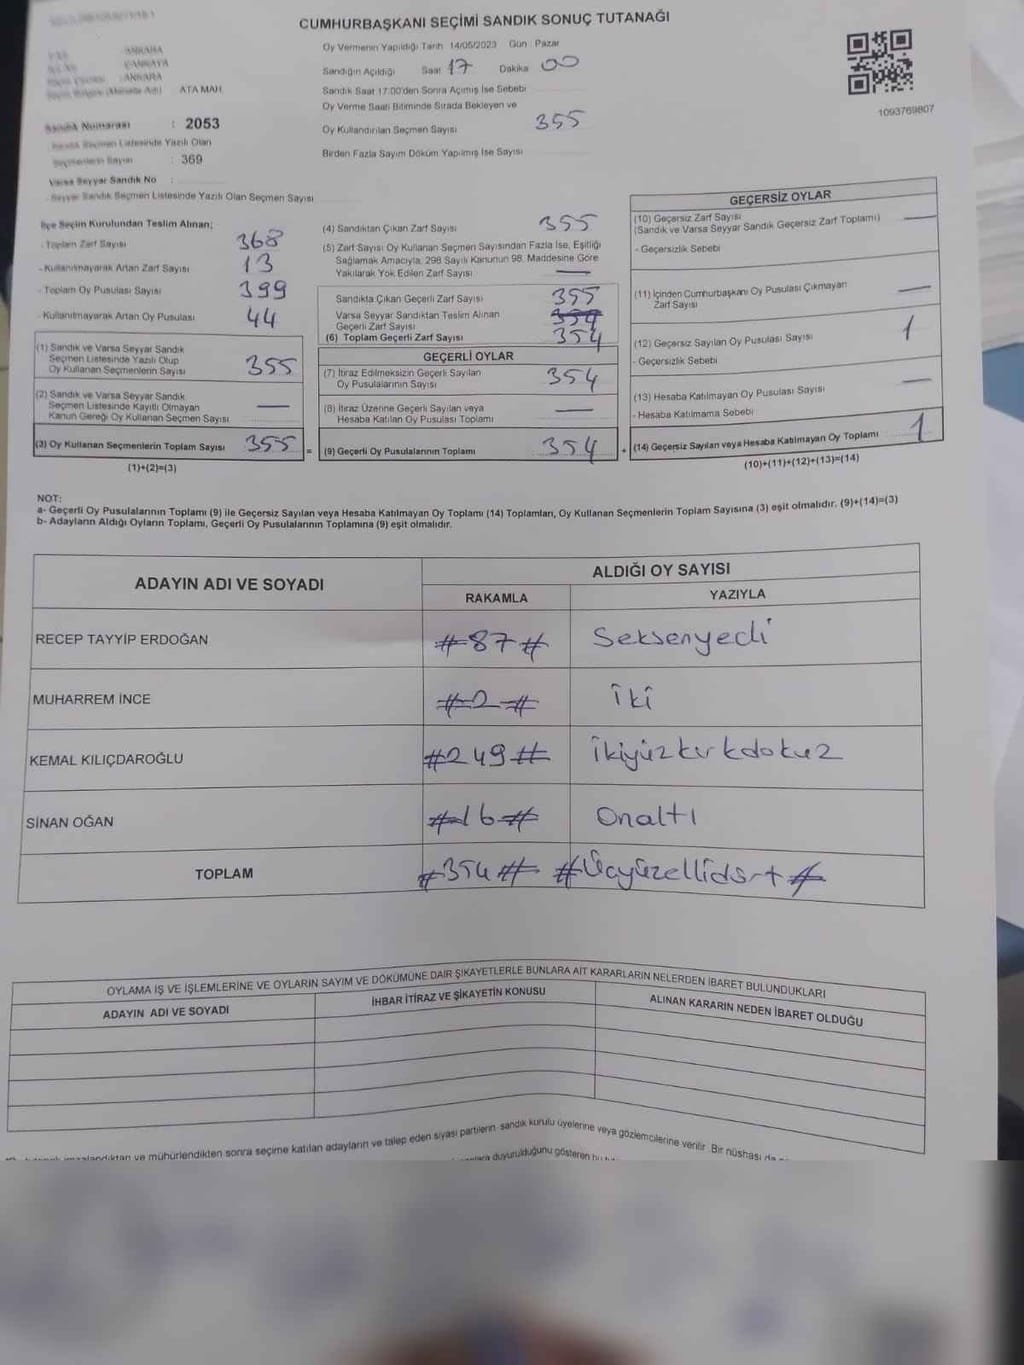 CUMHURBAŞKANI SEÇİMİ SANDIK SONUÇ TUTANAĞI
Oy Vermenin Yapıldığı Tarih 14/05/2023 Gün : Pazar
Sandığın Açıldığı Saat 17 Dakika 00
Sandık Saat 17:00'den Sonra Açımış İse Sebebi
Oy Verme Saati Bitiminde Sırada Bekleyen ve
Oy Kullandırılan Seçmen Sayısı 355
Birden Fazla Sayım Döküm Yapılmış İse Sayısı
1093769807
ANKARA
ÇANKAYA
ANKARA
ATA MAH.
Sandık Numarası : 2053
Sandık Seçmen Listesinde Yazılı Olan
Seçmenlerin Sayısı : 369
Varsa Seyyar Sandık No
Seyyar Sandık Seçmen Listesinde Yazılı Olan Seçmen Sayısı
İlçe Seçim Kurulundan Teslim Alınan;
- Toplam Zarf Sayısı 368
- Kullanılmayarak Artan Zarf Sayısı 13
- Toplam Oy Pusulası Sayısı 399
- Kullanılmayarak Artan Oy Pusulası 44
(1) Sandık ve Varsa Seyyar Sandık
Seçmen Listesinde Yazılı Olup
Oy Kullanan Seçmenlerin Sayısı 355
(2) Sandık ve Varsa Seyyar Sandık
Seçmen Listesinde Kayıtlı Olmayan
Kanun Gereği Oy Kullanan Seçmen Sayısı —
(3) Oy Kullanan Seçmenlerin Toplam Sayısı 355 =
(1)+(2)=(3)
(4) Sandıktan Çıkan Zarf Sayısı 355
(5) Zarf Sayısı Oy Kullanan Seçmen Sayısından Fazla İse, Eşitliği
Sağlamak Amacıyla, 298 Sayılı Kanunun 98. Maddesine Göre
Yakılarak Yok Edilen Zarf Sayısı —
Sandıkta Çıkan Geçerli Zarf Sayısı 355
Varsa Seyyar Sandıktan Teslim Alınan
Geçerli Zarf Sayısı 354
(6) Toplam Geçerli Zarf Sayısı 354
GEÇERLİ OYLAR
(7) İtiraz Edilmeksizin Geçerli Sayılan
Oy Pusulalarının Sayısı 354
(8) İtiraz Üzerine Geçerli Sayılan veya
Hesaba Katılan Oy Pusulası Toplamı —
(9) Geçerli Oy Pusulalarının Toplamı 354 +
GEÇERSİZ OYLAR
(10) Geçersiz Zarf Sayısı —
(Sandık ve Varsa Seyyar Sandık Geçersiz Zarf Toplamı)
- Geçersizlik Sebebi
(11) İçinden Cumhurbaşkanı Oy Pusulası Çıkmayan —
Zarf Sayısı
(12) Geçersiz Sayılan Oy Pusulası Sayısı 1
- Geçersizlik Sebebi
(13) Hesaba Katılmayan Oy Pusulası Sayısı —
- Hesaba Katılmama Sebebi
(14) Geçersiz Sayılan veya Hesaba Katılmayan Oy Toplamı 1
(10)+(11)+(12)+(13)=(14)
NOT:
a- Geçerli Oy Pusulalarının Toplamı (9) ile Geçersiz Sayılan veya Hesaba Katılmayan Oy Toplamı (14) Toplamları, Oy Kullanan Seçmenlerin Toplam Sayısına (3) eşit olmalıdır. (9)+(14)=(3)
b- Adayların Aldığı Oyların Toplamı, Geçerli Oy Pusulalarının Toplamına (9) eşit olmalıdır.
ADAYIN ADI VE SOYADI ALDIĞI OY SAYISI
RAKAMLA YAZIYLA
RECEP TAYYİP ERDOĞAN #87# Seksenyedi
MUHARREM İNCE #2# İki
KEMAL KILIÇDAROĞLU #249# ikiyüzkırkdokuz
SİNAN OĞAN #16# Onaltı
TOPLAM #354# #Üçyüzellidört#
OYLAMA İŞ VE İŞLEMLERİNE VE OYLARIN SAYIM VE DÖKÜMÜNE DAİR ŞİKAYETLERLE BUNLARA AİT KARARLARIN NELERDEN İBARET BULUNDUKLARI
ADAYIN ADI VE SOYADI İHBAR İTİRAZ VE ŞİKAYETİN KONUSU ALINAN KARARIN NEDEN İBARET OLDUĞU
ve mühürlendikten sonra seçime katılan adayların ve talep eden siyasi partilerin sandık kurulu üyelerine veya gözlemcilerine verilir. Bir nüshası da
duyurulduğunu gösteren